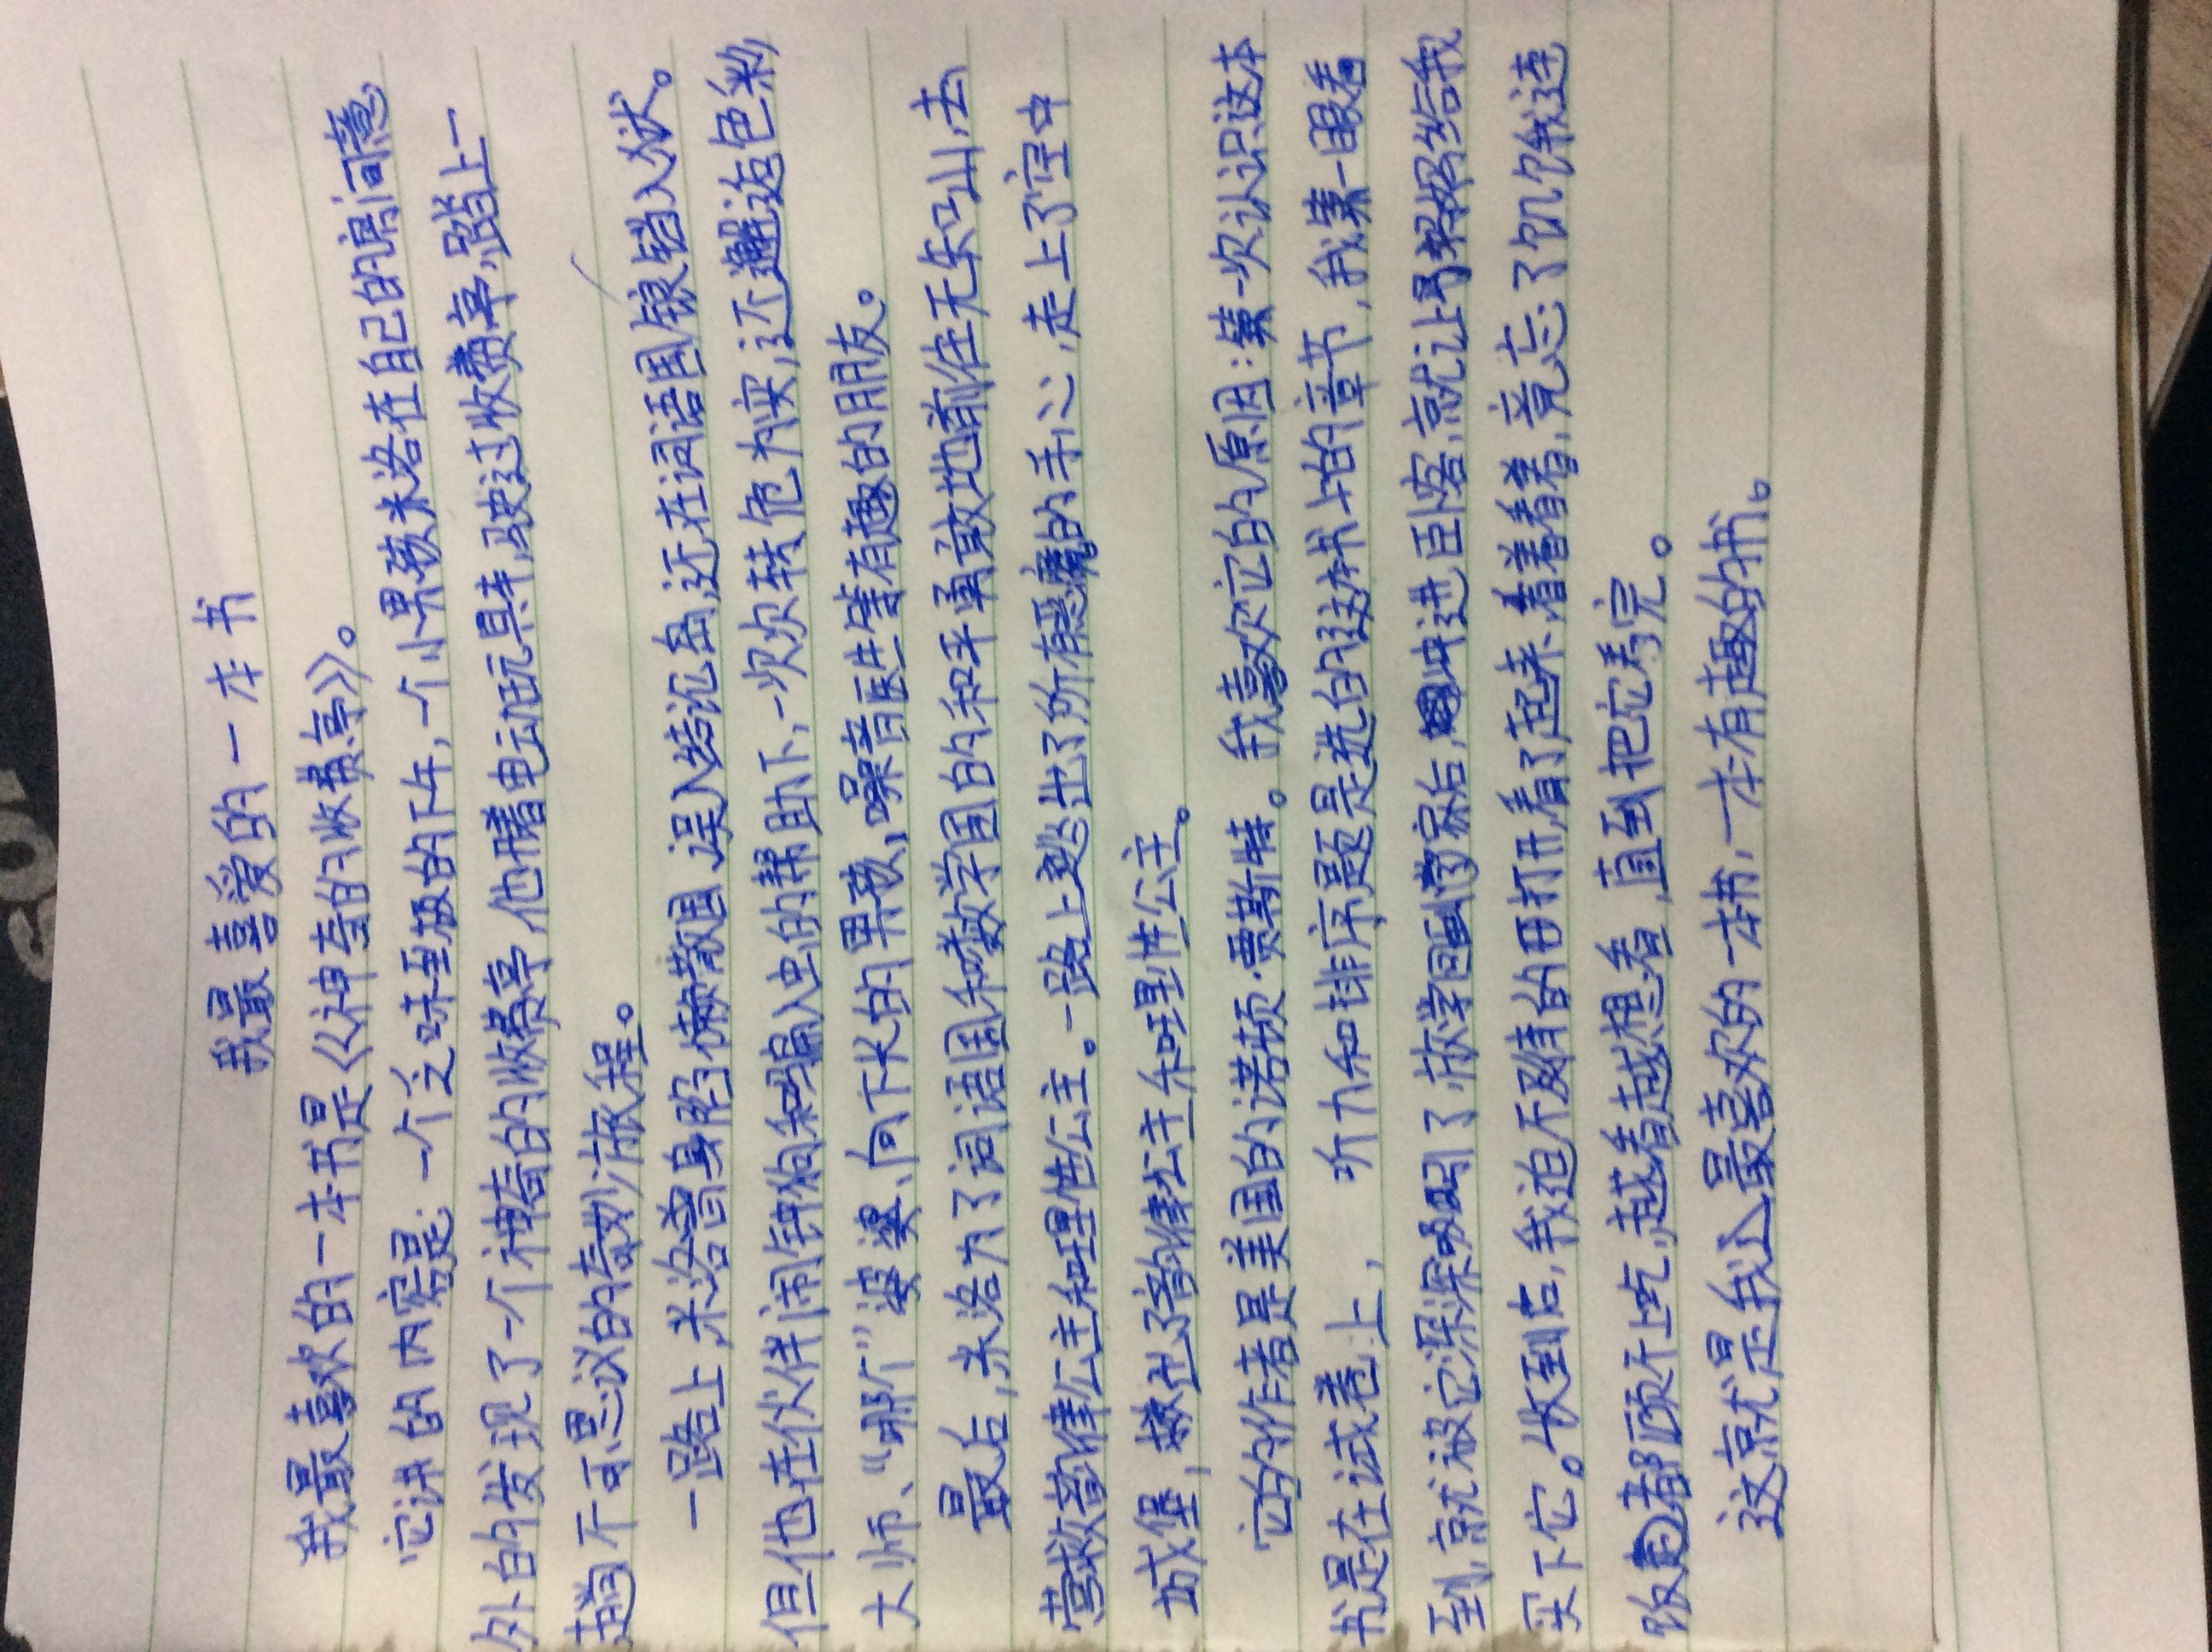 我最喜爱的一本书
我最喜欢的一本书是《神奇的收费亭》。
它讲的内容是:一个乏味至极的下午,一个小男孩米洛在自己的房间意
外的发现了一个神奇的收费亭,他开着电动玩具车,驶过收费亭,踏上一
趟不可思议的奇妙旅程。
一路上,米洛曾身陷懒散国,误入结论岛,还在词语国锒铛入狱。
但他在伙伴闹钟狗和骗人虫的帮助下,一次次转危为安,还邂逅色彩
大师、“哪个”婆婆、向下长的男孩、噪音医生等有趣的朋友。
最后,米洛为了词语国和数学国的和平勇敢地前往无知山,去
营救韵律公主和理性公主。一路上逃出了所有恶魔的手心,走上了空中
城堡,救出了韵律公主和理性公主。
它的作者是美国的诺顿·贾斯特。我喜欢它的原因:第一次认识这本
书是在试卷上, 听力和排序题是选的这本书上的章节,我第一眼看
到,就被它深深吸引了,放学回到家后,冲进卧室,就让妈妈给我
买下它。收到后,我迫不及待的打开,看了起来,看着看着,竟忘了饥饿,连
饭都顾不上吃,越看越想看,直到把它看完。
这就是我最喜欢的一本书,一本有趣的书。